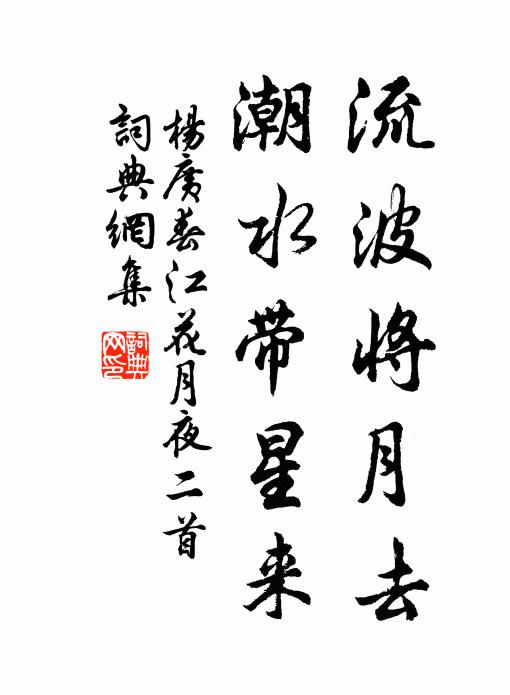 流波將月去
潮水带星来
楊廣春江花月夜二首
詞典網集
詞典網印